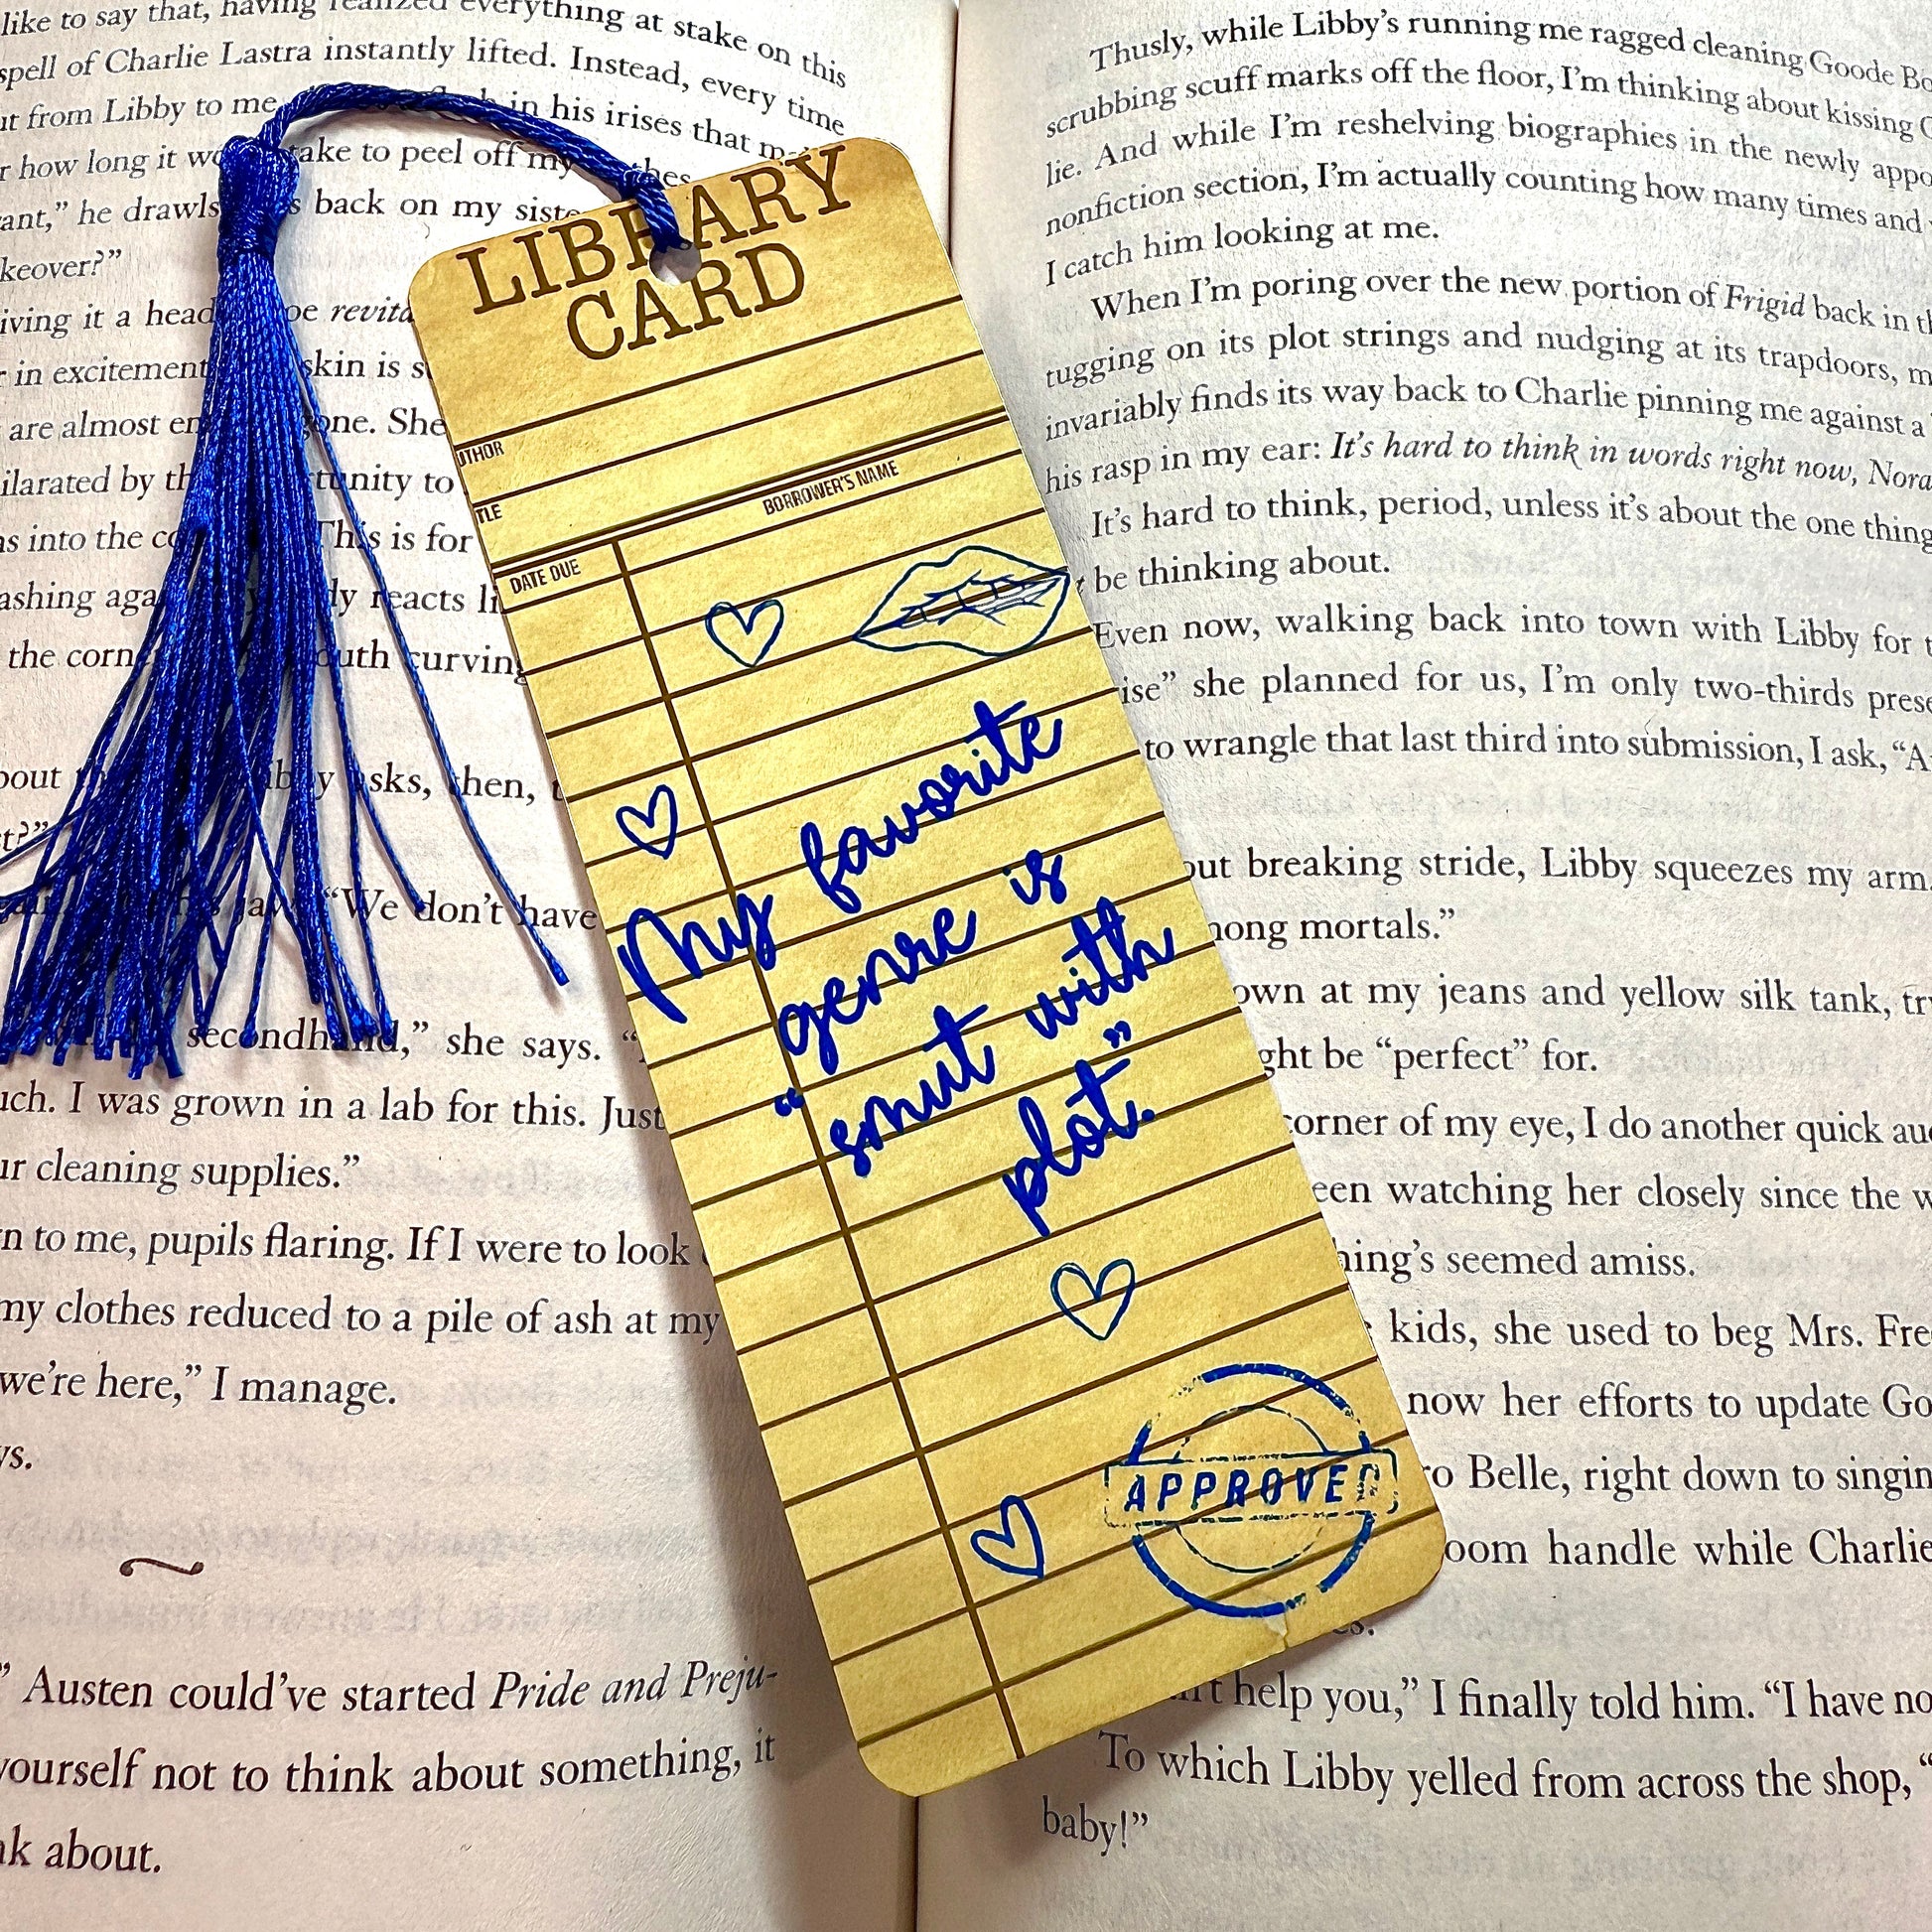 like to say that, having realized everything at stake on this
spell of Charlie Lastra instantly lifted. Instead, every time
from Libby to me in his irises that
how long it take to peel off my
he drawls back on my
keover?”
iving it a head
in excitement skin is
are almost gone. She
ilarated by to
into the This is for
reacts
the curving
asks, then,
“We don’t have
secondhand,” she says.
I was grown in a lab for this. Just
cleaning supplies.”
to me, pupils flaring. If I were to look
my clothes reduced to a pile of ash at my
we’re here,” I manage.
Austen could’ve started Pride and Preju-
yourself not to think about something, it
about.
LIBRARY
CARD
BORROWER'S NAME
DATE DUE
My favorite
genre is
“smut with
plot.”
APPROVED
Thusly, while Libby’s running me ragged cleaning Goode
scrubbing scuff marks off the floor, I’m thinking about kissing
lie. And while I’m reshelving biographies in the newly
nonfiction section, I’m actually counting how many times and
I catch him looking at me.
When I’m poring over the new portion of Frigid back in
tugging on its plot strings and nudging at its trapdoors,
invariably finds its way back to Charlie pinning me against a
his rasp in my ear: It’s hard to think in words right now, Nora
It’s hard to think, period, unless it’s about the one thing
be thinking about.
Even now, walking back into town with Libby for
she planned for us, I’m only two-thirds
to wrangle that last third into submission, I ask,
breaking stride, Libby squeezes my arm
mortals.”
at my jeans and yellow silk tank,
be “perfect” for.
corner of my eye, I do another quick
watching her closely since the
seemed amiss.
kids, she used to beg Mrs.
now her efforts to update
Belle, right down to
handle while Charlie
help you,” I finally told him. “I have
To which Libby yelled from across the shop,
baby!”